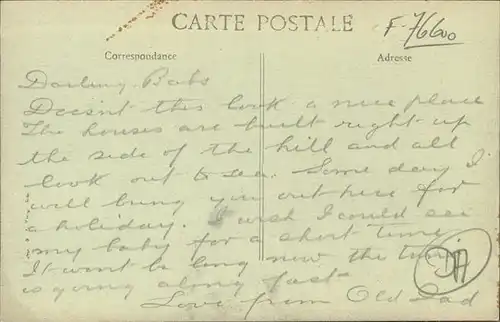 CARTE POSTALE
F-76600
Correspondance
Adresse
Darling Babs
Doesn't this look a nice place
The houses are built right up
the side of the hill and all
look out to sea. Some day I
will bring you out here for
a holiday. I wish I could see
my baby for a short time
It wont be long now the time
is going along fast
Love from Old Dad
DA